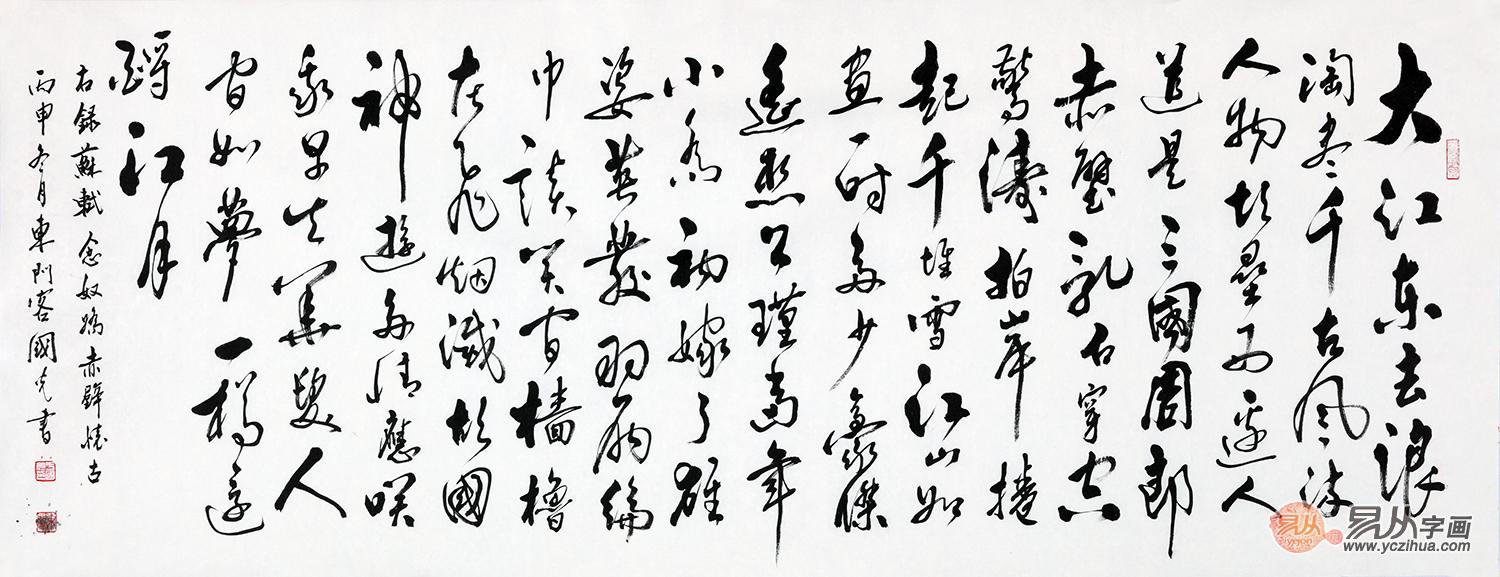 大江东去浪
淘尽千古风流
人物故垒西边人
道是三國周郎
赤壁乱石穿空
驚濤拍岸捲
起千堆雪江山如
画一时多少豪傑
遥想公瑾当年
小乔初嫁了雄
姿英發羽扇綸
巾談笑间檣櫓
灰飞烟滅故國
神遊多情應笑
我早生华髮人
间如夢一樽还
酹江月
右録蘇軾念奴嬌赤壁懷古
丙申冬月東門客國克書
易从
易从字画
www.yczihua.com